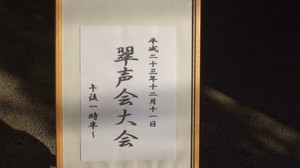 平成二十三年十二月十一日
翠声会大会
午後一時半～